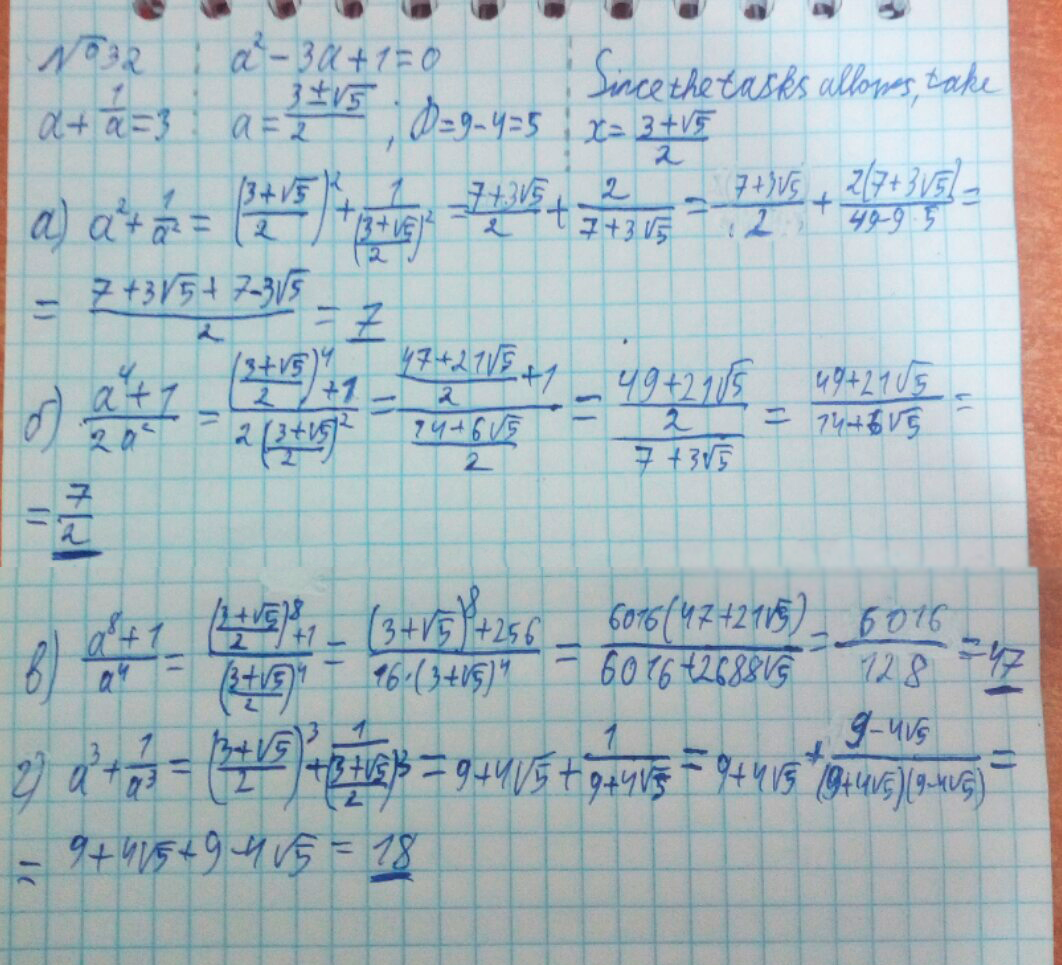 №932 a² - 3a + 1 = 0
a + 1/a = 3 a = (3 ± √5)/2 ; D = 9 - 4 = 5
Since the tasks allows, take
x = (3 + √5)/2
а) a² + 1/a² = ((3+√5)/2)² + 1/((3+√5)/2)² = (7+3√5)/2 + 2/(7+3√5) = (7+3√5)/2 + 2(7+3√5)/(49-9·5) =
= (7+3√5+7-3√5)/2 = 7
б) (a⁴+1)/(2a²) = (((3+√5)/2)⁴+1)/(2((3+√5)/2)²) = ((47+21√5)/2+1)/((14+6√5)/2) = ((49+21√5)/2)/(7+3√5) = (49+21√5)/(14+6√5) =
= 7/2
в) (a⁸+1)/a⁴ = (((3+√5)/2)⁸+1)/((3+√5)/2)⁴ = ((3+√5)⁸+256)/(16·(3+√5)⁴) = 6016(47+21√5)/(6016+2688√5) = 6016/128 = 47
г) a³ + 1/a³ = ((3+√5)/2)³ + 1/((3+√5)/2)³ = 9+4√5 + 1/(9+4√5) = 9+4√5 + (9-4√5)/((9+4√5)(9-4√5)) =
= 9+4√5+9-4√5 = 18